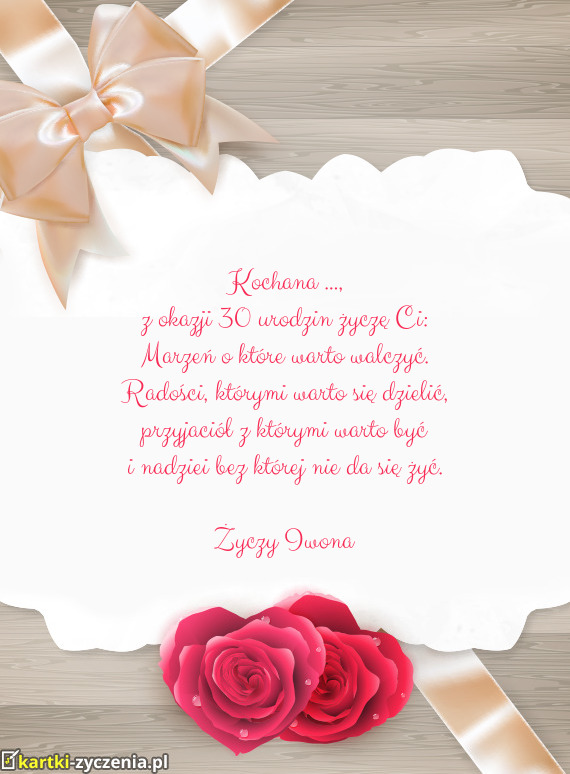 Kochana ...,
z okazji 30 urodzin życzę Ci:
Marzeń o które warto walczyć.
Radości, którymi warto się dzielić,
przyjaciół z którymi warto być
i nadziei bez której nie da się żyć.
Życzy Iwona
kartki-zyczenia.pl